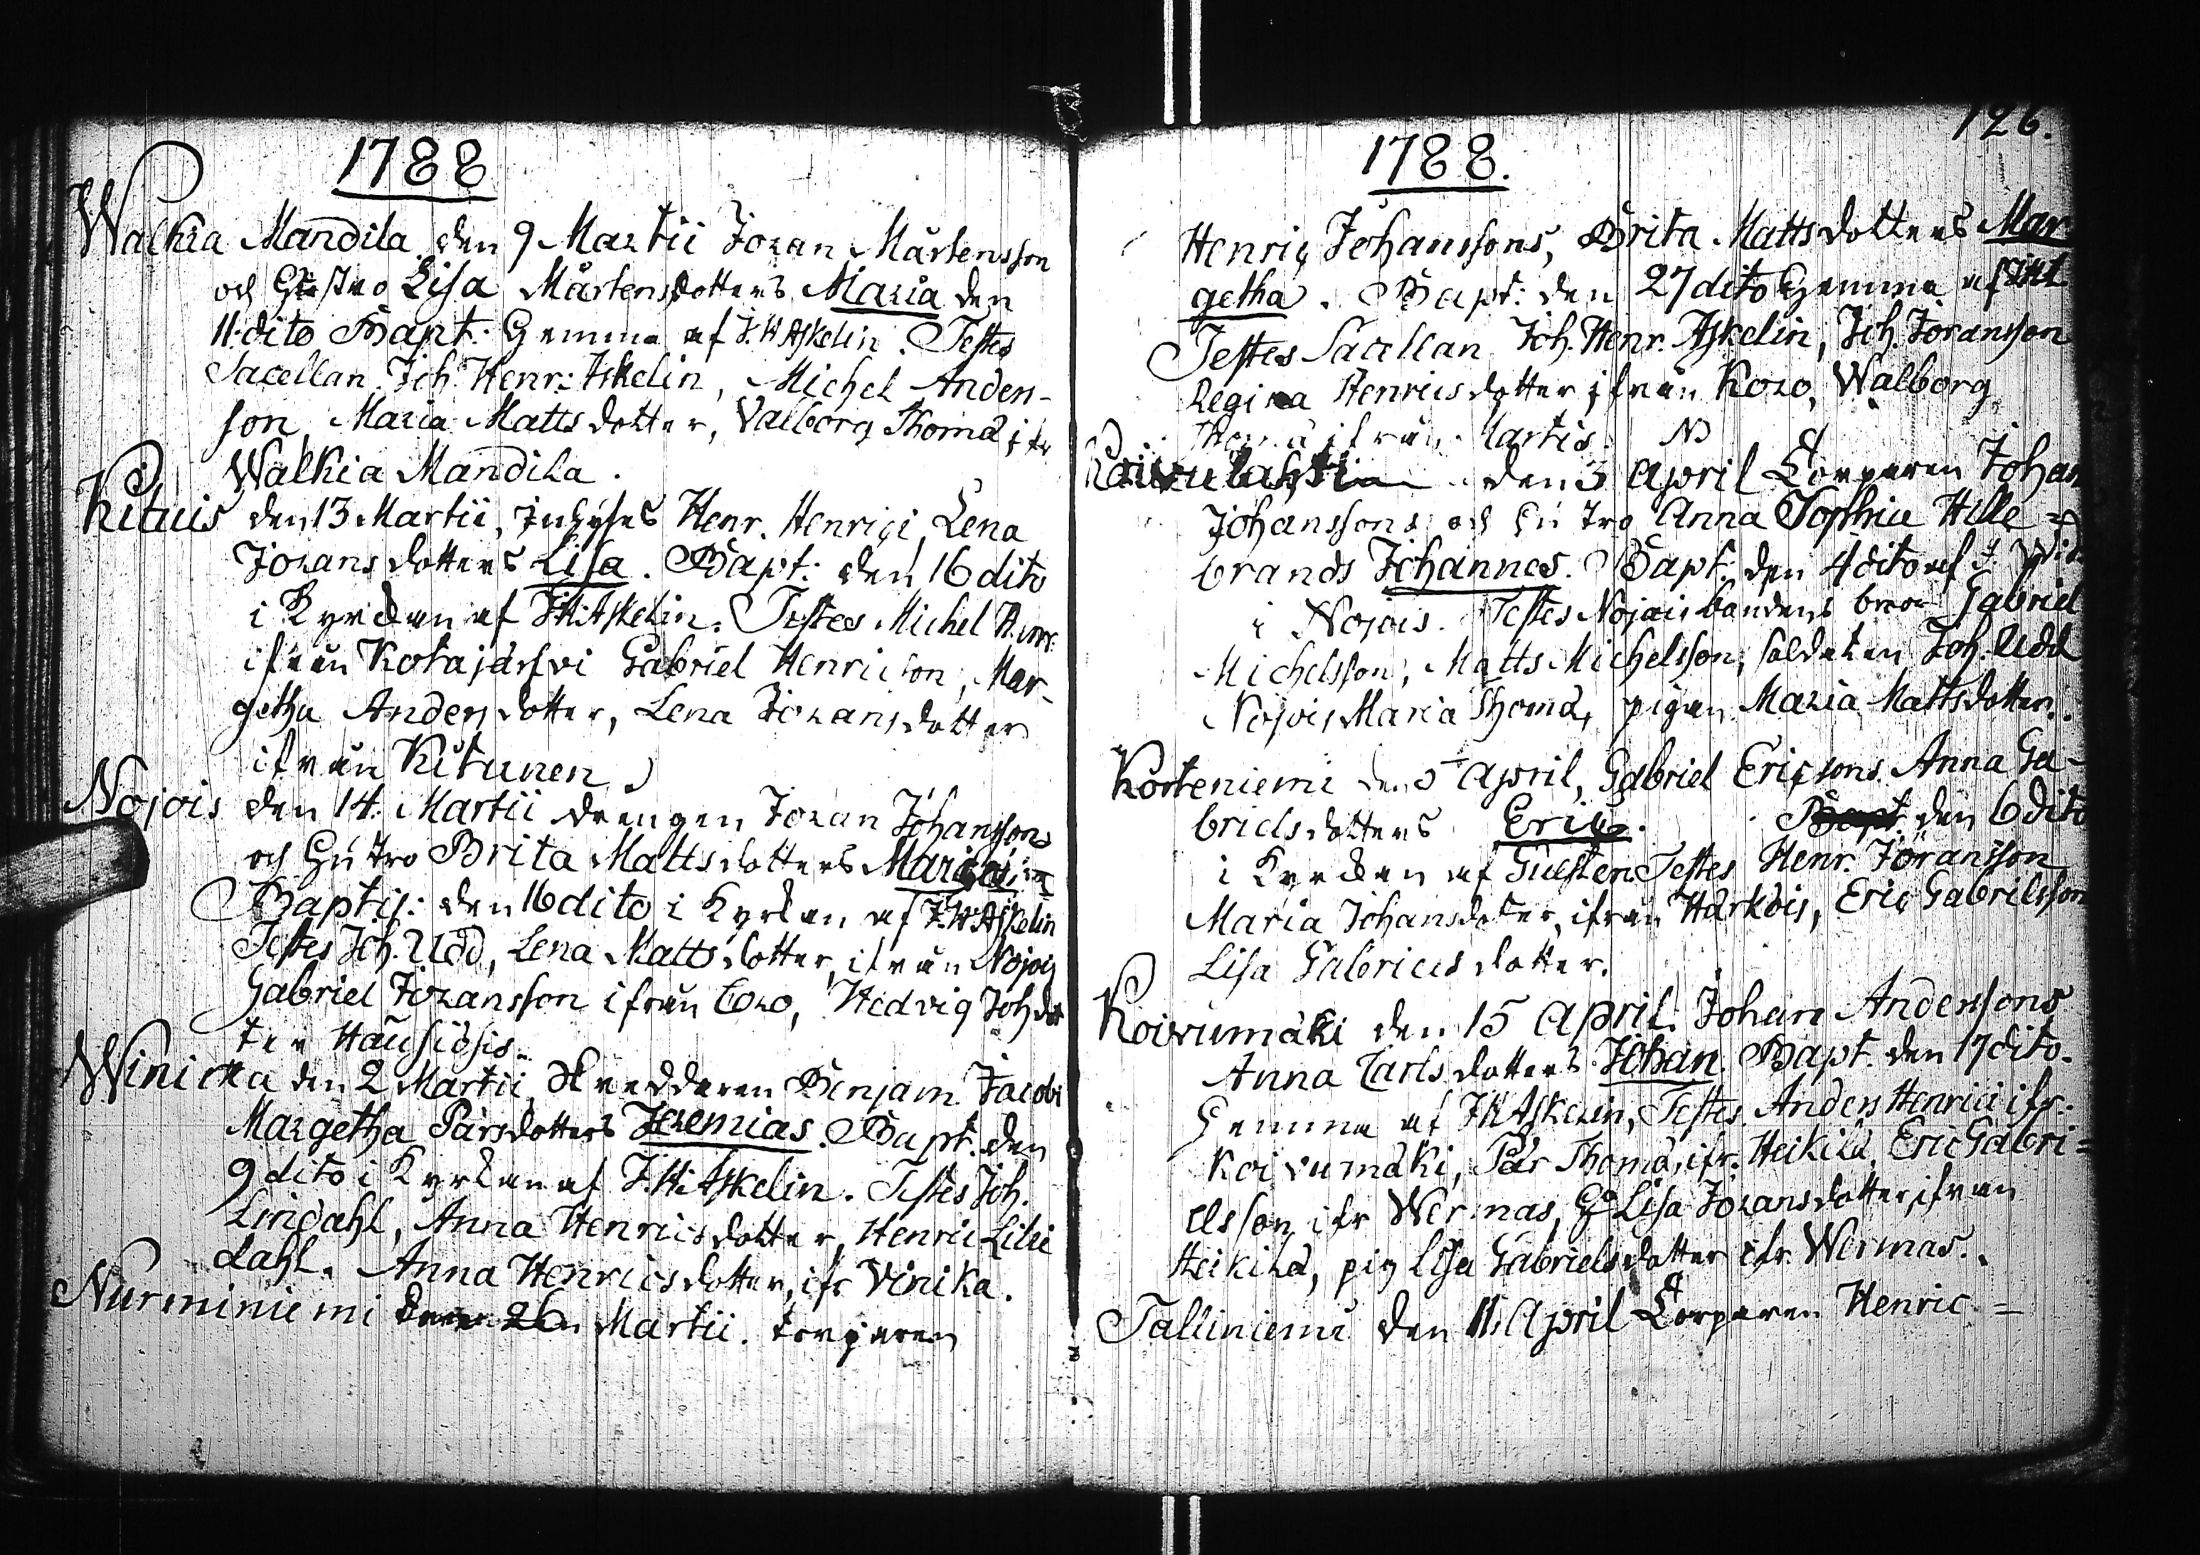 1788
Walkia Mandila den 9 Martii Joran Mårtensson
och Hustro Lisa Mårtensdotters Maria den
11. dito Bapt: Hemma af J. H Askelin. Testes
Sacellan. Joh. Henr: Askelin, Michel Anders-
son, Maria Mattsdotter, Valborg Thomæ ifr
Walkia Mandila.
Kituis den 13 Martii, Inhyses Henr. Henrici, Lena
Joransdotters Lisa. Bapt: den 16 dito
i Kyrckan af J. H. Askelin. Testes Michel
ifrån Kotajärfvi Gabriel Henricson, Mar-
getha Andersdotter, Lena Joransdotter
ifrån Kitunen
Nojois den 14. Martii drengen Joran Johanssons
och Hustro Brita Mattsdotters
Baptis: den 16 dito i Kyrkan af J. H Askelin
Testes Joh. Udd, Lena Mattsdotter, ifrån Nojois
Gabriel Joransson ifrån Coro, Hedvig Joh dot
ter Hausiösis.
Winicka den 2 Martii, Skreddaren Benjam. Jacobi
Margetha Pärsdotters Jeremias. Bapt. den
9 dito i Kyrkan af J. H. Askelin. Testes Joh.
Lindahl, Anna Henricsdotter, Henric Lilie
dahl. Anna Henricsdotter, ifr Vinika.
Nurminiemi den 26 Martii. torparen
126.
1788.
Henric Johanssons, Brita Mattsdotters Mar
getha. Bapt: den 27 dito Hemma af
Testes Sacellan Joh. Henr. Askelin, Joh. Joransson
Regina Henricsdotter ifrån Koro, Walborg
Thomæ ifrån Martis.
Raivulahti den 3 April Torparen Johan
Johanssons och Hustro Anna Sophia Hille =
brands Johannes. Bapt: den 4 dito af
i Nojois. Testes Nojois bondens bror Gabriel
Michelsson, Matts Michelsson, soldaten Joh. Udd
Nojois Maria Thomæ, pigan Maria Mattsdotter.
Korteniemi den 5 April, Gabriel Ericsons Anna Ga-
brielsdotters Eric. Bapt den 6 dito
i Kyrckan af Testes Henr. Joransson
Maria Johansdotter, ifrån Härköis, Eric Gabrielsson
Lisa Gabrielsdotter.
Koivumäki den 15 April. Johan Anderssons
Anna Carlsdotters Johan. Bapt. den 17 dito.
Hemma af J H Askelin, Testes. Anders Henrici ifr.
Koivumäki, Pär Thomæ, ifr. Heikilä, Eric Gabri =
elsson ifr Wermas, Lisa Joransdotter, ifrån
Heikilä, pig Lisa Gabrielsdotter ifr. Wermas.
Talliniemi den 11. April Torparen Henric =